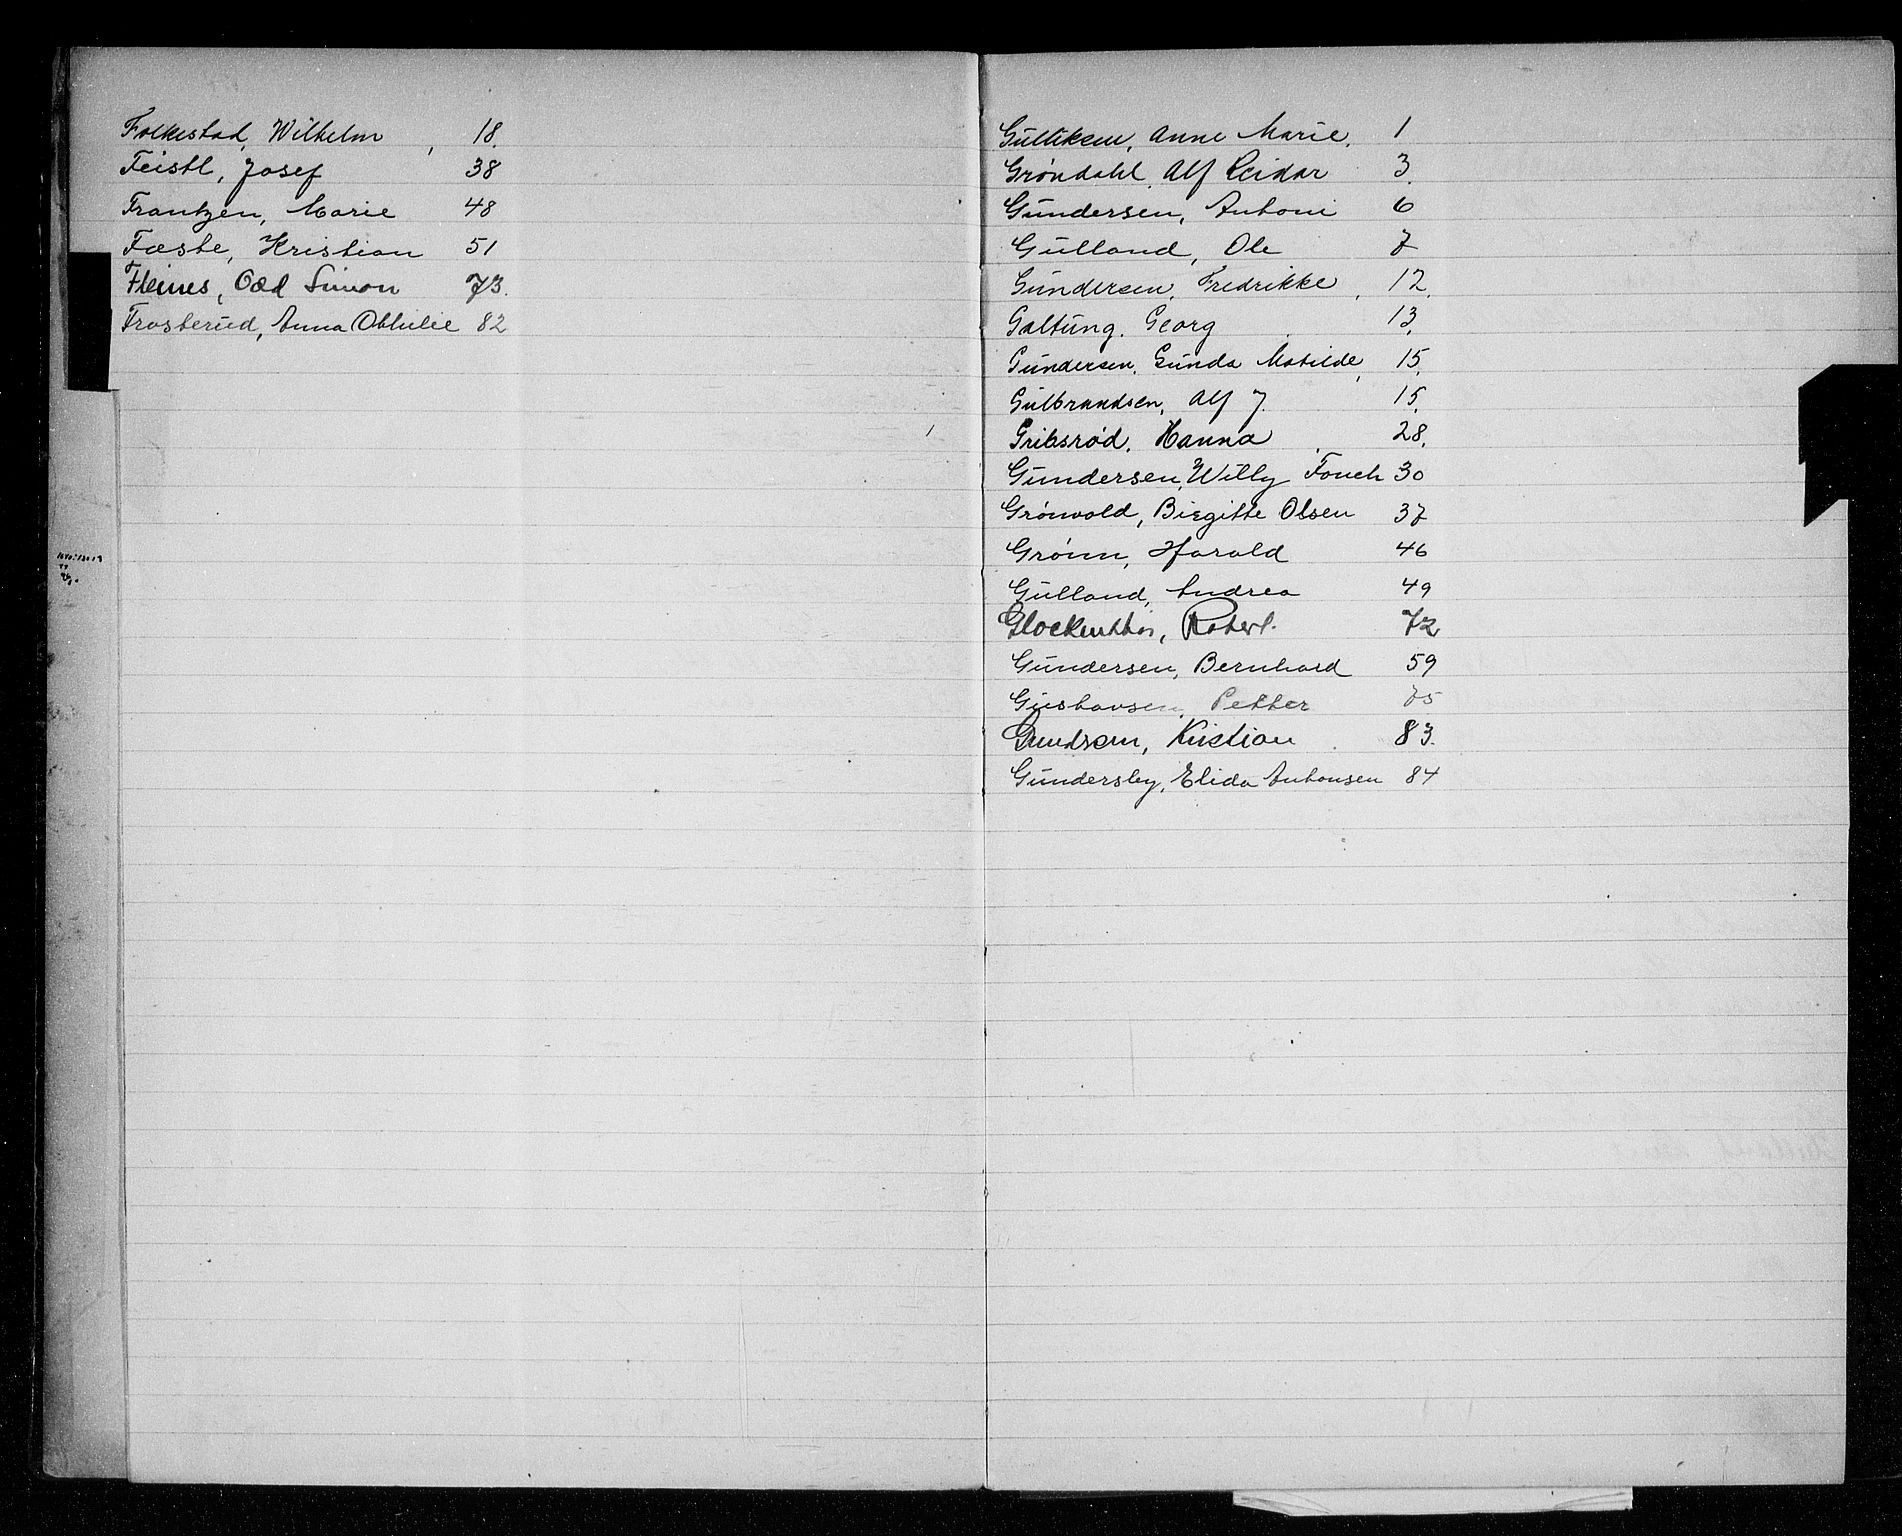 Folkestad, Wilhelm, 18.
Feistl, Josef 38
Frantzen, Marie 48
Fæste, Kristian 51
Fleines, Odd Simon 73.
Frosterud, Anna Othilie 82
Gulliksen, Anne Marie. 1
Grøndahl, Alf Reidar 3
Gundersen, Antoni 6
Gulland, Ole 7
Gundersen, Fredrikke, 12.
Galtung, Georg 13.
Gundersen, Gunda Matilde, 15.
Gulbrandsen, Alf J. 15.
Gribsrød, Hanna 28.
Gundersen, Willy Fouch 30
Grønvold, Birgitte Olsen 37
Grønn, Harald 46
Gulland, Andrea 49
Robert. 72
Gundersen, Bernhard 59
Gustavsen, Petter 75
Kristian 83.
Gundersby, Elida Antonsen 84